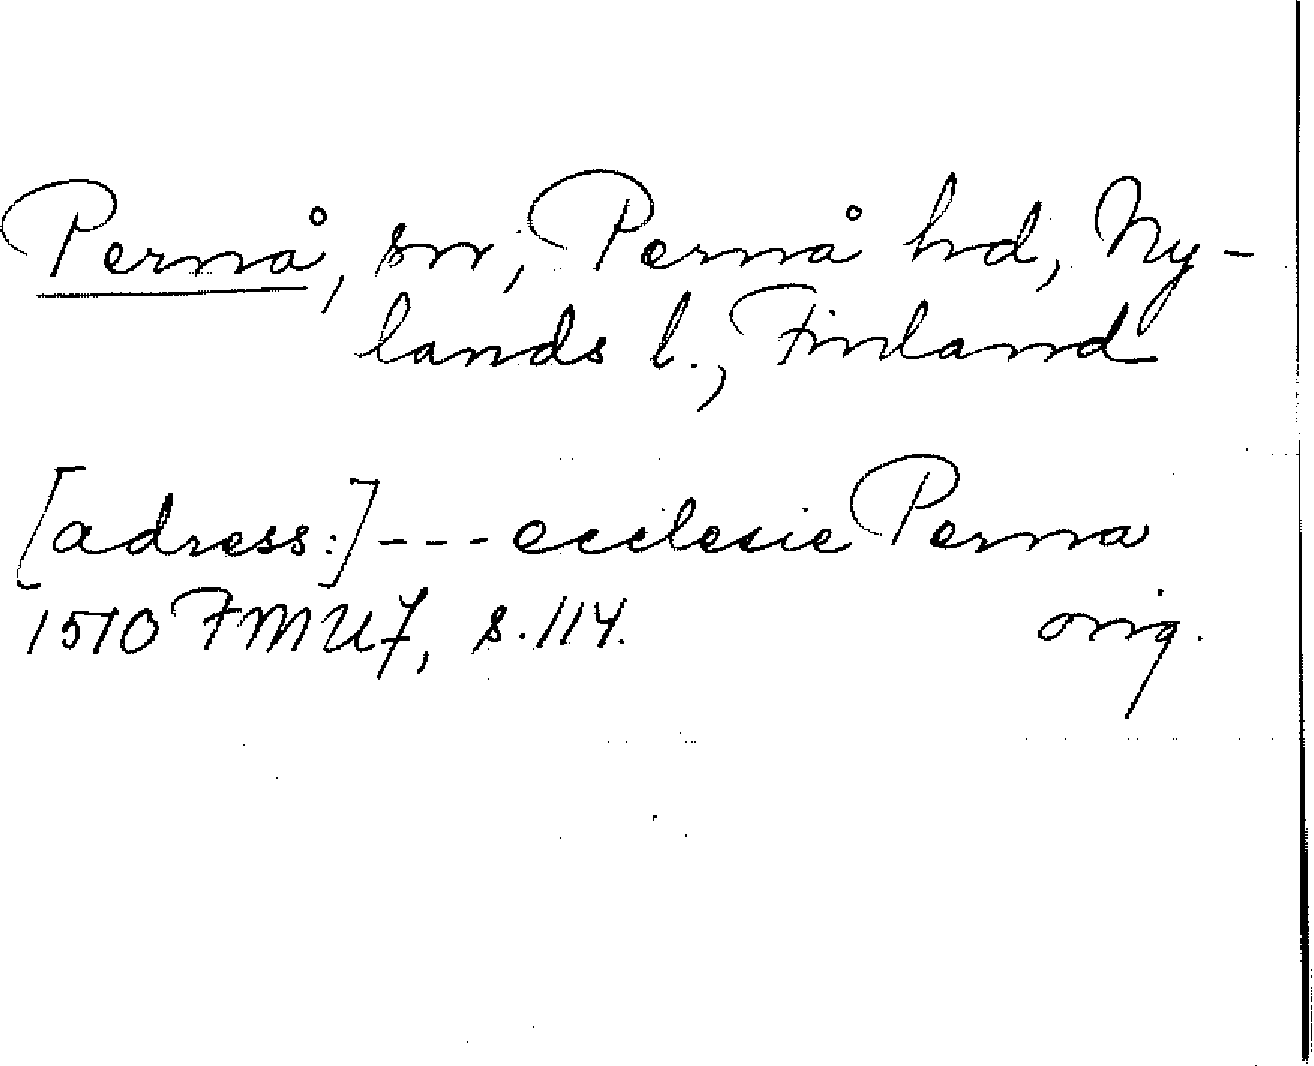 Pernå, sn, Pernå hd, Ny-
lands l., Finland
[adress:] --- ecclesie Perna
1510 FMU 7, s. 114. orig.